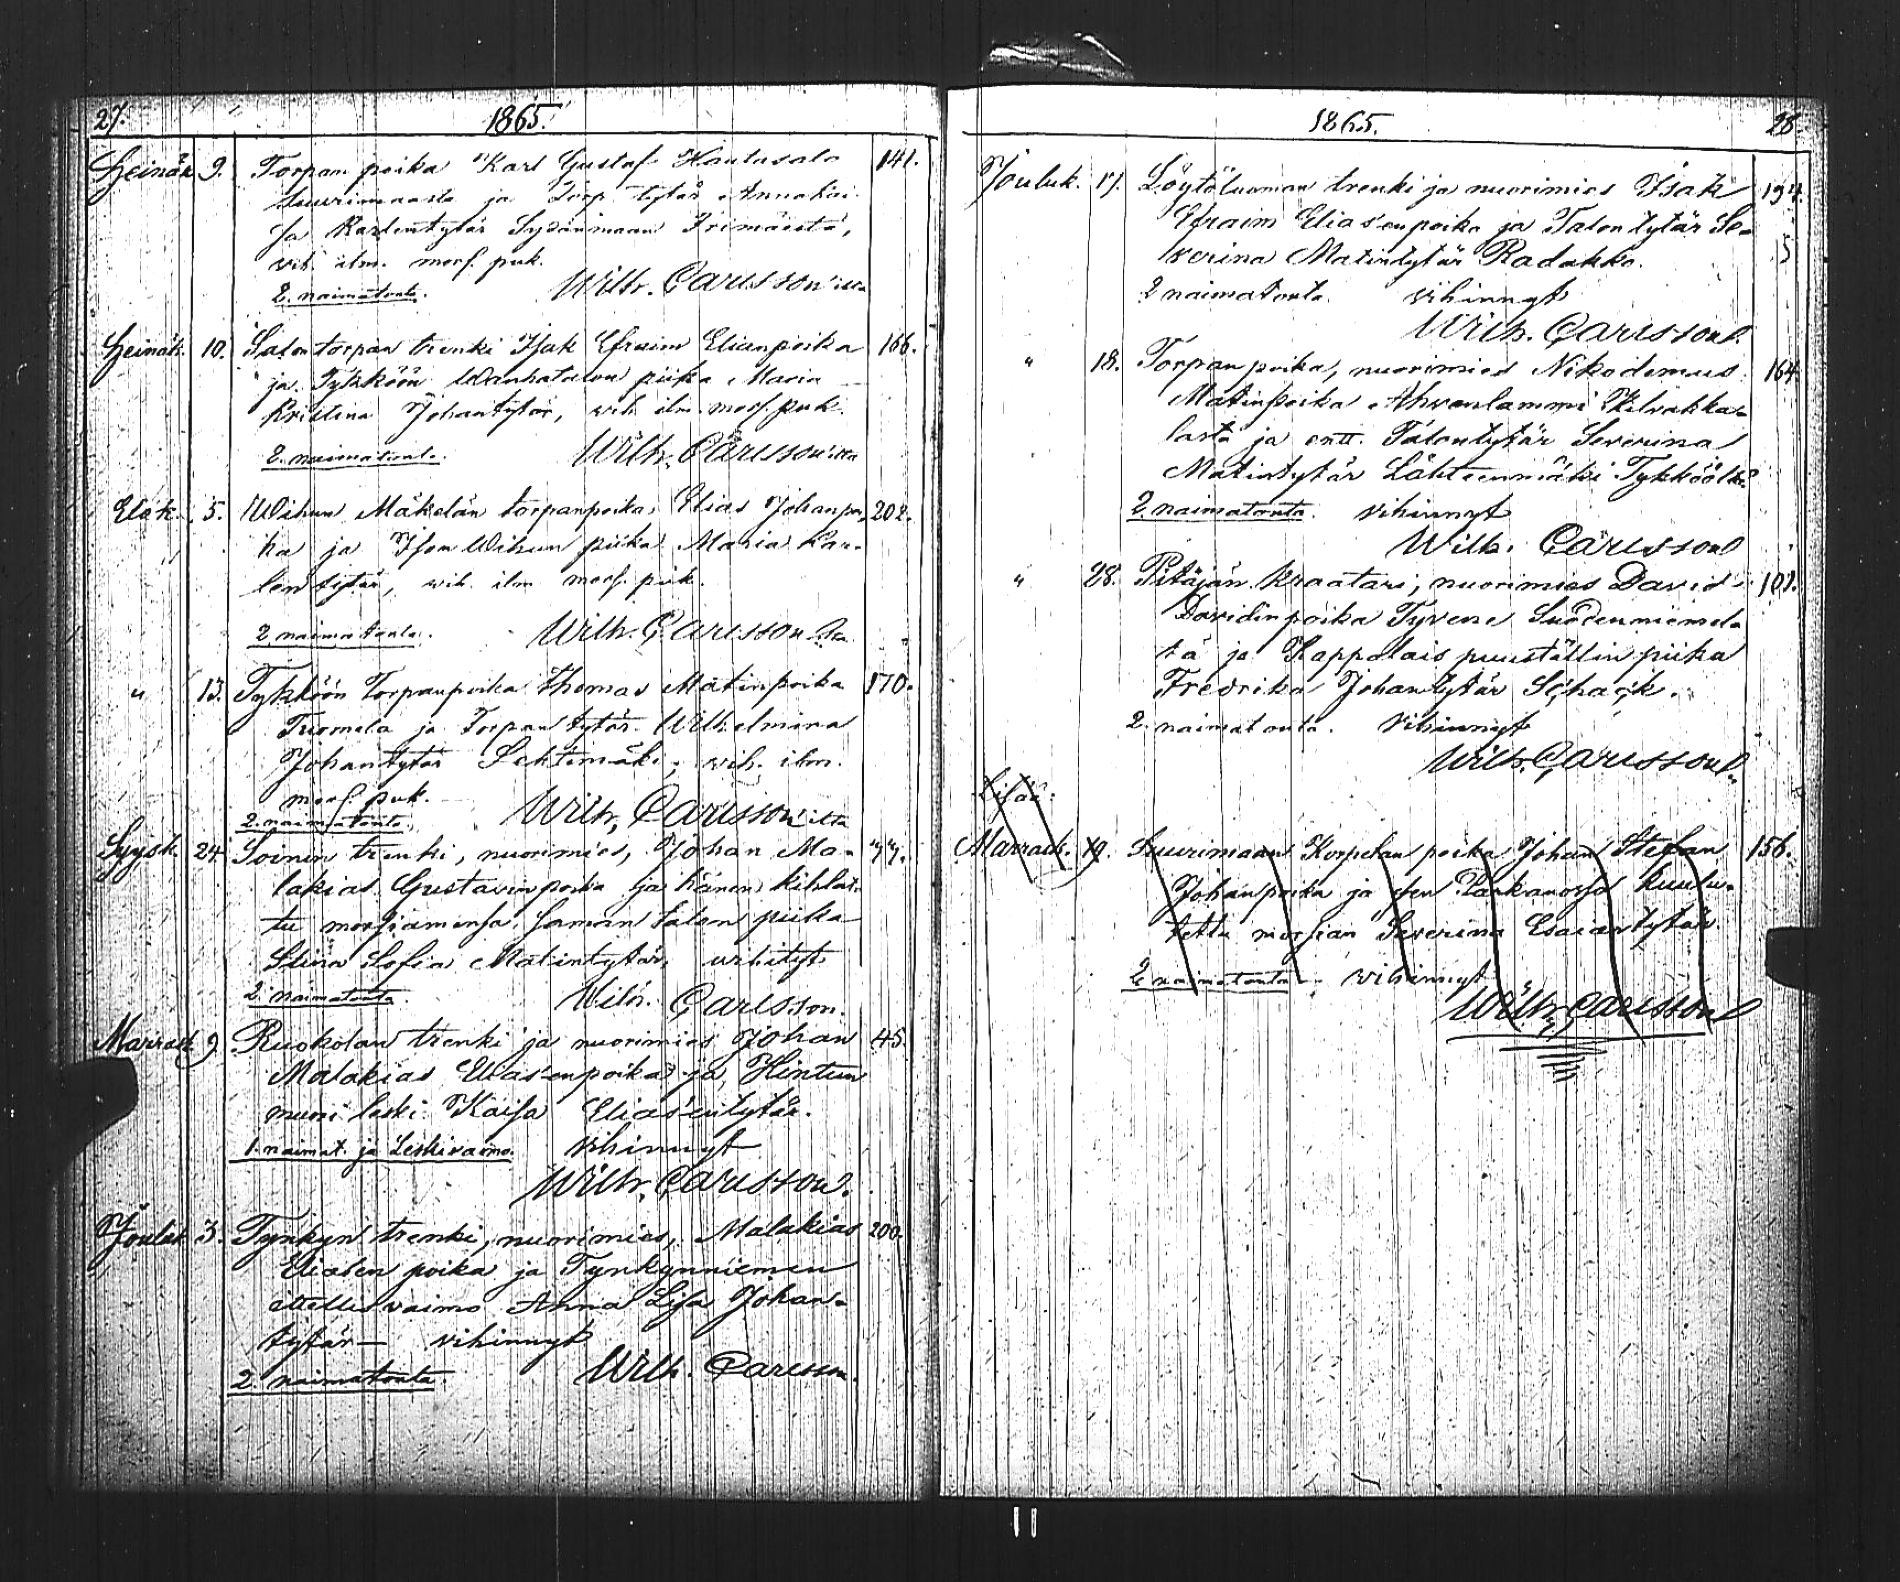 27. 1865.
Heinäk. 9. Torpan poika Karl Gustaf Hautasalo 141.
Suurimaasta ja Torp. tytär Anna Kai-
sa Karlentytär Sydänmaan
vih. ilm. mors. puk.
2. naimatonta. Wilh. Carlsson'ilta
Heinäk. 10. Salontorpan trenki Isak Efraim Elianpoika 166.
ja Tykköön Wanhatalon piika Maria
Kristina Johantytär, vih. ilm. mors. puk.
2. naimatonta. Wilh. Carlsson'ilta
Elok. 5. Wihun Mäkelän torpanpoika Elias Johanpoi- 202.
ka ja Ison Wihun piika Maria Kar-
lentytär, vih. ilm. mors. puk.
2 naimatonta. Wilh. Carlsson
" 13. Tykköön Torpanpoika Thomas Matinpoika 170.
Tuomela ja Torpantytär Wilhelmina
Johantytär Lehtimäki, vih. ilm.
mors. puk.
2. naimatonta. Wilh. Carlsson'ilta
Syysk. 24. Soinin trenki, nuorimies, Johan Ma- 77.
lakias Gustavinpoika ja hänen kihlat-
tu morsiamensa, saman talon piika
Stiina Sofia Matintytär, vihityt
2 naimatonta. Wilh. Carlsson.
Marrask. 9. Ruokolan trenki ja nuorimies Johan 45.
Malakias Eliasenpoika ja Hintun
muori leski Kaisa Eliasentytär.
1. naimat. ja Leskivaimo. vihinnyt
Wilh. Carlsson.
Jouluk. 3. Tynkyn trenki, nuorimies, Malakias 200.
Elialen poika ja Tynkynniemen
vaimo Anna Lisa Johan-
tytär— vihinnyt
2. naimatonta. Wilh. Carlsson.
1865. 28.
Jouluk. 17. Löytöluoman trenki ja nuorimies Isak 194.
Efraim Elias'enpoika ja Talontytär Se-
verina Matintytär Radakko.
2 naimatonta. vihinnyt
Wilh. Carlsson.
" 18. Torpanpoika, nuorimies Nikodemus 164.
Matinpoika Ahvenlammi Kilvakka-
lasta ja entt. Talontytär Severina
Matintytär Lähteenmäki Tykköölt.
2. naimatonta. vihinnyt
Wilh. Carlsson
" 28. Pitäjän kraatari, nuorimies David 101.
Davidinpoika Tyrene Suodenniemel-
tä ja Kappalais puuställin piika
Fredrika Johantytär Schack.
2. naimatonta. vihinnyt
Wilh. Carlsson.
Lisää:
Marrask. 19. Suurimaan Korpelan poika Johan Stefan 156.
Johanpoika ja sen Parkanossa kuulu-
tettu morsian Severina Esaiantytär.
2 naimatonta. vihinnyt
Wilh. Carlsson
11